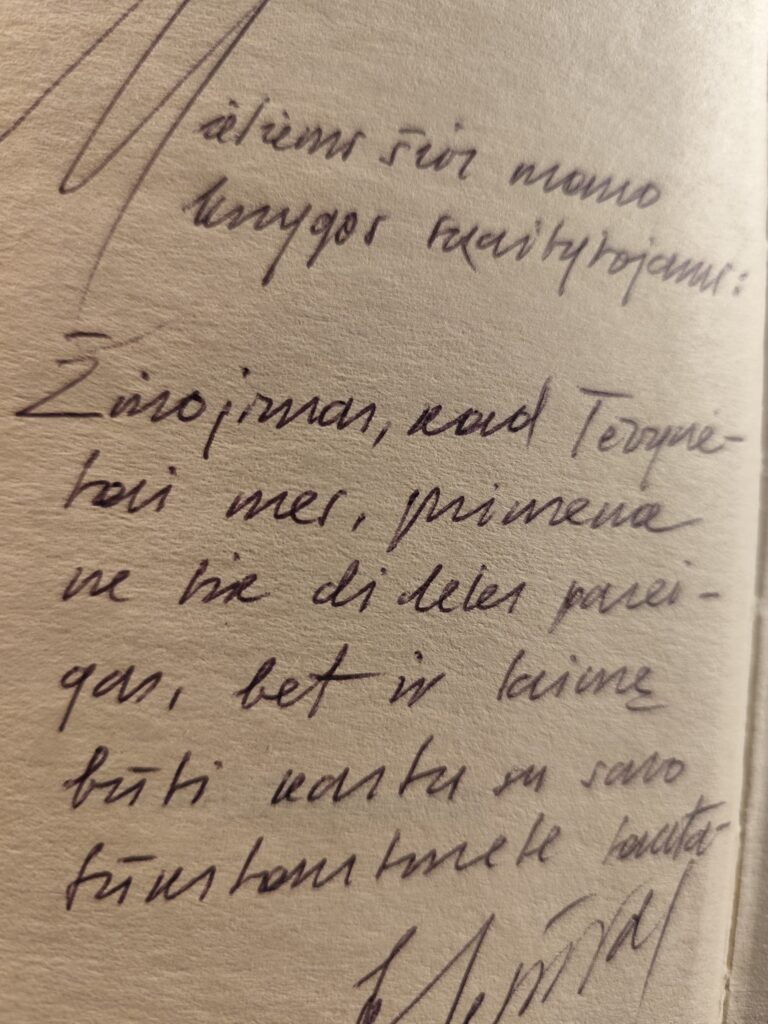 Mieliems šios mano
knygos skaitytojams:
Žinojimas, kad Tėvynė-
tai mes, primena
ne tik dideles parei-
gas, bet ir laimę
būti kartu su savo
tūkstantmete tauta-